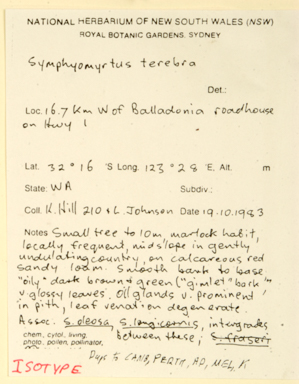 NATIONAL HERBARIUM OF NEW SOUTH WALES (NSW)
ROYAL BOTANIC GARDENS, SYDNEY
Symphyomyrtus terebra
Det.:
Loc. 16.7 km W of Balladonia roadhouse
on Hwy 1
Lat. 32° 16 'S Long. 123° 28 'E, Alt. m
State: WA Subdiv.:
Coll. K. Hill 210 & L. Johnson Date 19.10.1983
Notes Small tree to 10m, marlock habit,
locally frequent, midslope in gently
undulating country, on calcareous red
sandy loam. Smooth bark to base
"oily" dark brown + green ("gimlet" bark)
v glossy leaves. Oil glands v. prominent
in pith, leaf venation degenerate.
Assoc. S. oleosa, S. longicornis, intergrades
chem, cytol, living, between these, S. fraseri
photo, pollen, pollinator,
Dups to CANB, PERTH, AD, MEL, K
ISOTYPE